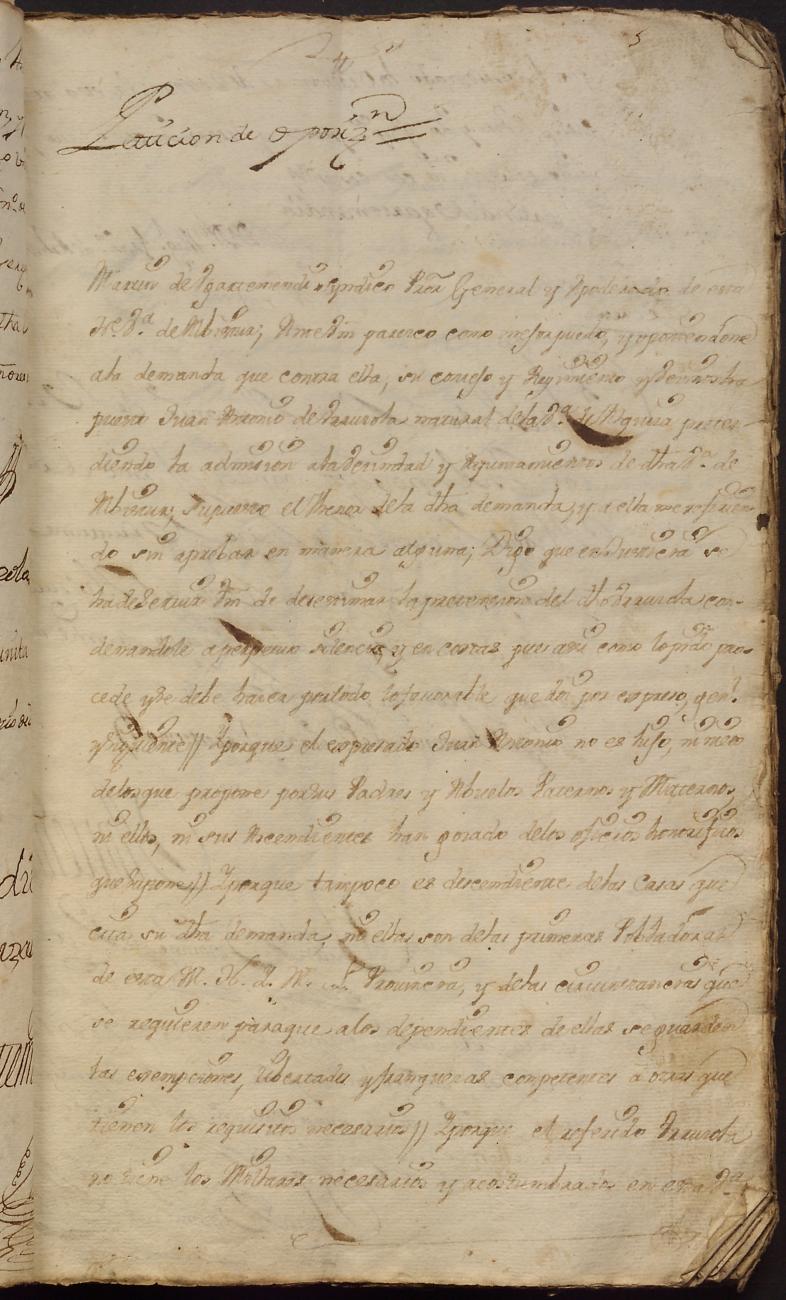 5
Peticion de oposizn
Martin de Ygarzemendi sindico Prór General y Apoderado de esta
N. Va. de Albiztur; Ante Vm parezco como mejor puedo, y oponiendome
ala demanda que contra ella, su consejo y Regimiento y Vecinos ha
puesto Juan Antonio de Yrazusta natural dela Va. de Alquiza preten-
diendo la admision ala Vecindad y Ayuntamientos de dha Va. de
Albiztur; Supuesto el thenor dela dha demanda, y a ella me refirien-
do sin aprobar en manera alguna; Digo que en Justicia se
ha de servir Vm de desestimar la pretension del dho Yrazusta con-
denandole a perpetuo silencio, y en costas que asi como lo pido pro-
cede y se debe hacer por todo lo favorable que doi por expreso, genl.
y siguiente// Yporque el expresado Juan Antonio no es hijo, ni nieto
delos que propone por sus Padres y Abuelos Paternos y Maternos,
ni ellos, ni sus Ascendientes han gozado delos oficios honorificos
que supone// Yporque tampoco es descendiente delas Casas que
cita su dha demanda, ni ellas son delas primeras Pobladoras
de esta M. N. L. M. L. Provincia, y delas circunstancias que
se requieren paraque alos dependientes de ellas se guarden
las exempciones, libertades y franquezas competentes a otras que
tienen los requisitos necesarios// Yporque el referido Yrazusta
no tiene los Millares necesarios y acostumbrados en esta Va.